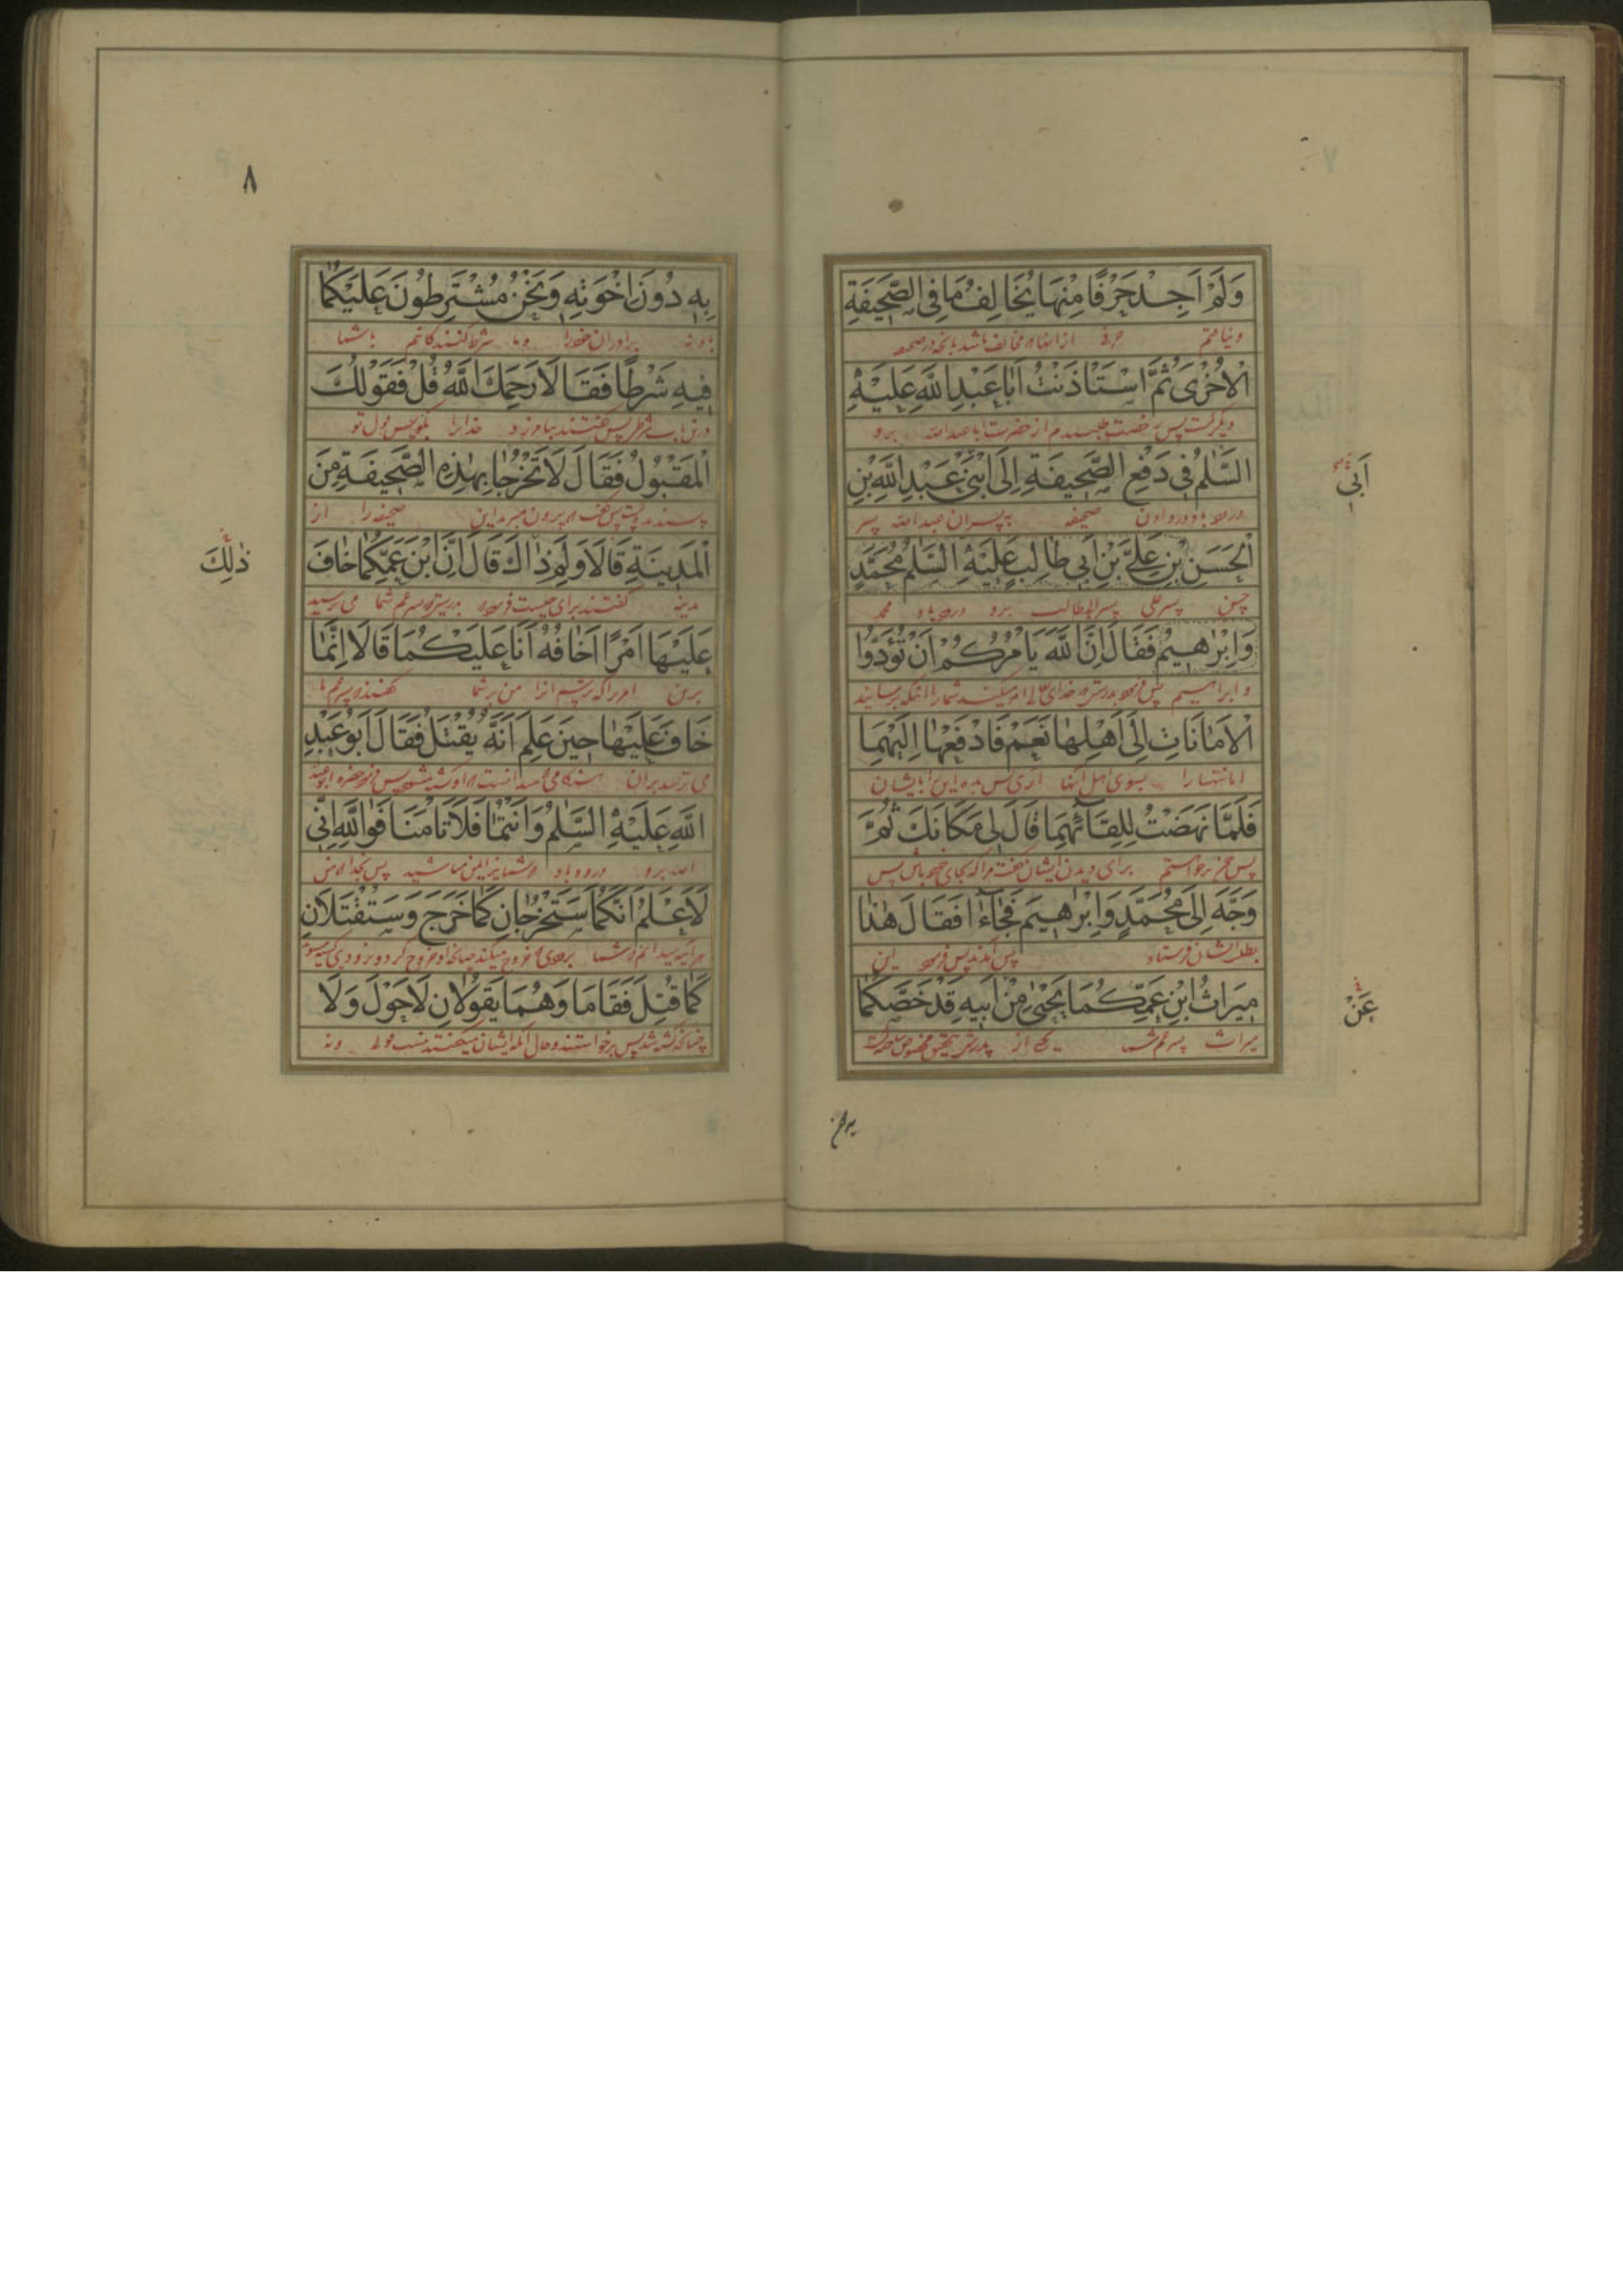 وَلَمْ اَجِدْ حَرْفًا مِنْهَا يُخَالِفُ مَا فِي الصَّحِيفَةِ
ونیافتم حرفی از انها که مخالف باشد بانچه در صحیفه
الْاُخْرٰى ثُمَّ اسْتَاْذَنْتُ اَبَا عَبْدِ اللّٰهِ عَلَيْهِ
دیگر است پس رخصت طلبیدم از حضرت اباعبدالله برو
السَّلٰمُ فِي دَفْعِ الصَّحِيفَةِ اِلَى ابْنَيْ عَبْدِ اللّٰهِ بْنِ
درود باد در دادن صحیفه به پسران عبدالله پسر
الْحَسَنِ بْنِ عَلِيِّ بْنِ اَبِي طَالِبٍ عَلَيْهِ السَّلٰمُ مُحَمَّدٍ
حسن پسر علی پسر ابوطالب برو درود باد محمد
وَاِبْرٰهِيْمَ فَقَالَ اِنَّ اللّٰهَ يَاْمُرُكُمْ اَنْ تُؤَدُّوا
و ابراهیم پس فرمود بدرستی که خدای تعالی امر میکند شما را انکه برسانید
الْاَمَانَاتِ اِلٰى اَهْلِهَا نَعَمْ فَادْفَعْهَا اِلَيْهِمَا
امانتها را بسوی اهل انها اری پس بده این را بایشان
فَلَمَّا نَهَضْتُ لِلِقَائِهِمَا قَالَ لِي مَكَانَكَ ثُمَّ
پس چون برخواستم برای دیدن ایشان گفت مرا که بجای خود باش پس
وَجَّهَ اِلٰى مُحَمَّدٍ وَاِبْرٰهِيمَ فَجَاءَا فَقَالَ هٰذَا
بطلب ایشان فرستاد پس آمدند پس فرمود این
مِيرَاثُ ابْنِ عَمِّكُمَا يَحْيٰى مِنْ اَبِيهِ قَدْ خَصَّكُمَا
میراث پسر عم شما یحیی از پدرش بتحقیق مخصوص ساخته است
اَبِي
عَنْ
٨
بِهِ دُونَ اِخْوَتِهِ وَنَحْنُ مُشْتَرِطُونَ عَلَيْكُمَا
باو نه برادران خود را و ما شرط کنندگانیم با شما
فِيهِ شَرْطًا فَقَالَا رَحِمَكَ اللّٰهُ قُلْ فَقَوْلُكَ
درین باب شرطی پس گفتند بیامرزد خدا ترا بگو پس قول تو
الْمَقْبُولُ فَقَالَ لَا تَخْرُجَا بِهٰذِهِ الصَّحِيفَةِ مِنَ
پسندیده است پس گفت که بیرون مبرید این صحیفه را از
الْمَدِينَةِ قَالَا وَلِمَ ذَاكَ قَالَ اِنَّ ابْنَ عَمِّكُمَا خَافَ
مدینه گفتند برای چیست فرمود بدرستی که پسر عم شما می ترسید
عَلَيْهَا اَمْرًا اَخَافُهُ اَنَا عَلَيْكُمَا قَالَا اِنَّمَا
برین امر را که ترسم انرا من بر شما گفتند
خَافَ عَلَيْهَا حِينَ عَلِمَ اَنَّهُ يُقْتَلُ فَقَالَ اَبُو عَبْدِ
می ترسید بران هنگامی که میدانست که او کشته میشود پس فرمود حضرت ابوعبد
اللّٰهِ عَلَيْهِ السَّلٰمُ وَاَنْتُمَا فَلَا تَاْمَنَا فَوَاللّٰهِ اِنِّي
الله برو درود باد که شما نیز ایمن مباشید پس بخدا که من
لَاَعْلَمُ اَنَّكُمَا سَتَخْرُجَانِ كَمَا خَرَجَ وَسَتُقْتَلَانِ
هر آینه میدانم که شما بزودی خروج میکنید چنانچه او خروج کرد و بزودی کشته میشوید
كَمَا قُتِلَ فَقَامَا وَهُمَا يَقُولَانِ لَا حَوْلَ وَلَا
چنانچه کشته شد پس برخواستند و حال انکه ایشان میگفتند نیست قوة و نه
ذٰلِكَ